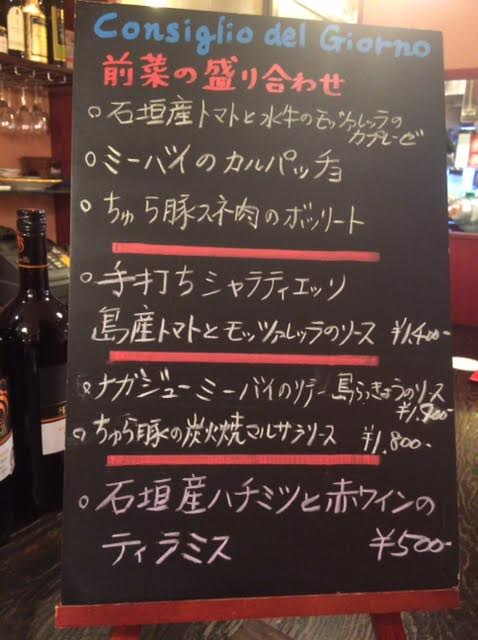 Consiglio del Giorno
前菜の盛り合わせ
○石垣産トマトと水牛のモッツァレッラの
カプレーゼ
○ミーバイのカルパッチョ
○ちゅら豚スネ肉のボッリート
○手打ちシャラティエッリ
島産トマトとモッツァレッラのソース ¥1,400-
○ナガジューミーバイのソテー 島らっきょうのソース
¥1,800-
○ちゅら豚の炭火焼マルサラソース ¥1,800-
○石垣産ハチミツと赤ワインの
ティラミス ¥500-